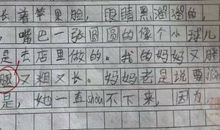 长着苹果脸,眼睛黑溜溜的,
嘴巴一张圆圆的像个小球儿
是去店里做的。我的妈妈又胖
腿又粗又长。妈妈老是说要
是,她一直shòu不下来,因为